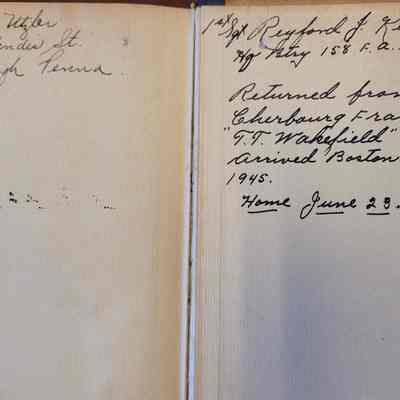 Utzler
St.
Penna.
1st Sgt Reyford J. Ke
Hq Btry 158 F.A.
Returned from
Cherbourg Fra
"T.T. Wakefield"
Arrived Boston
1945.
Home June 23.